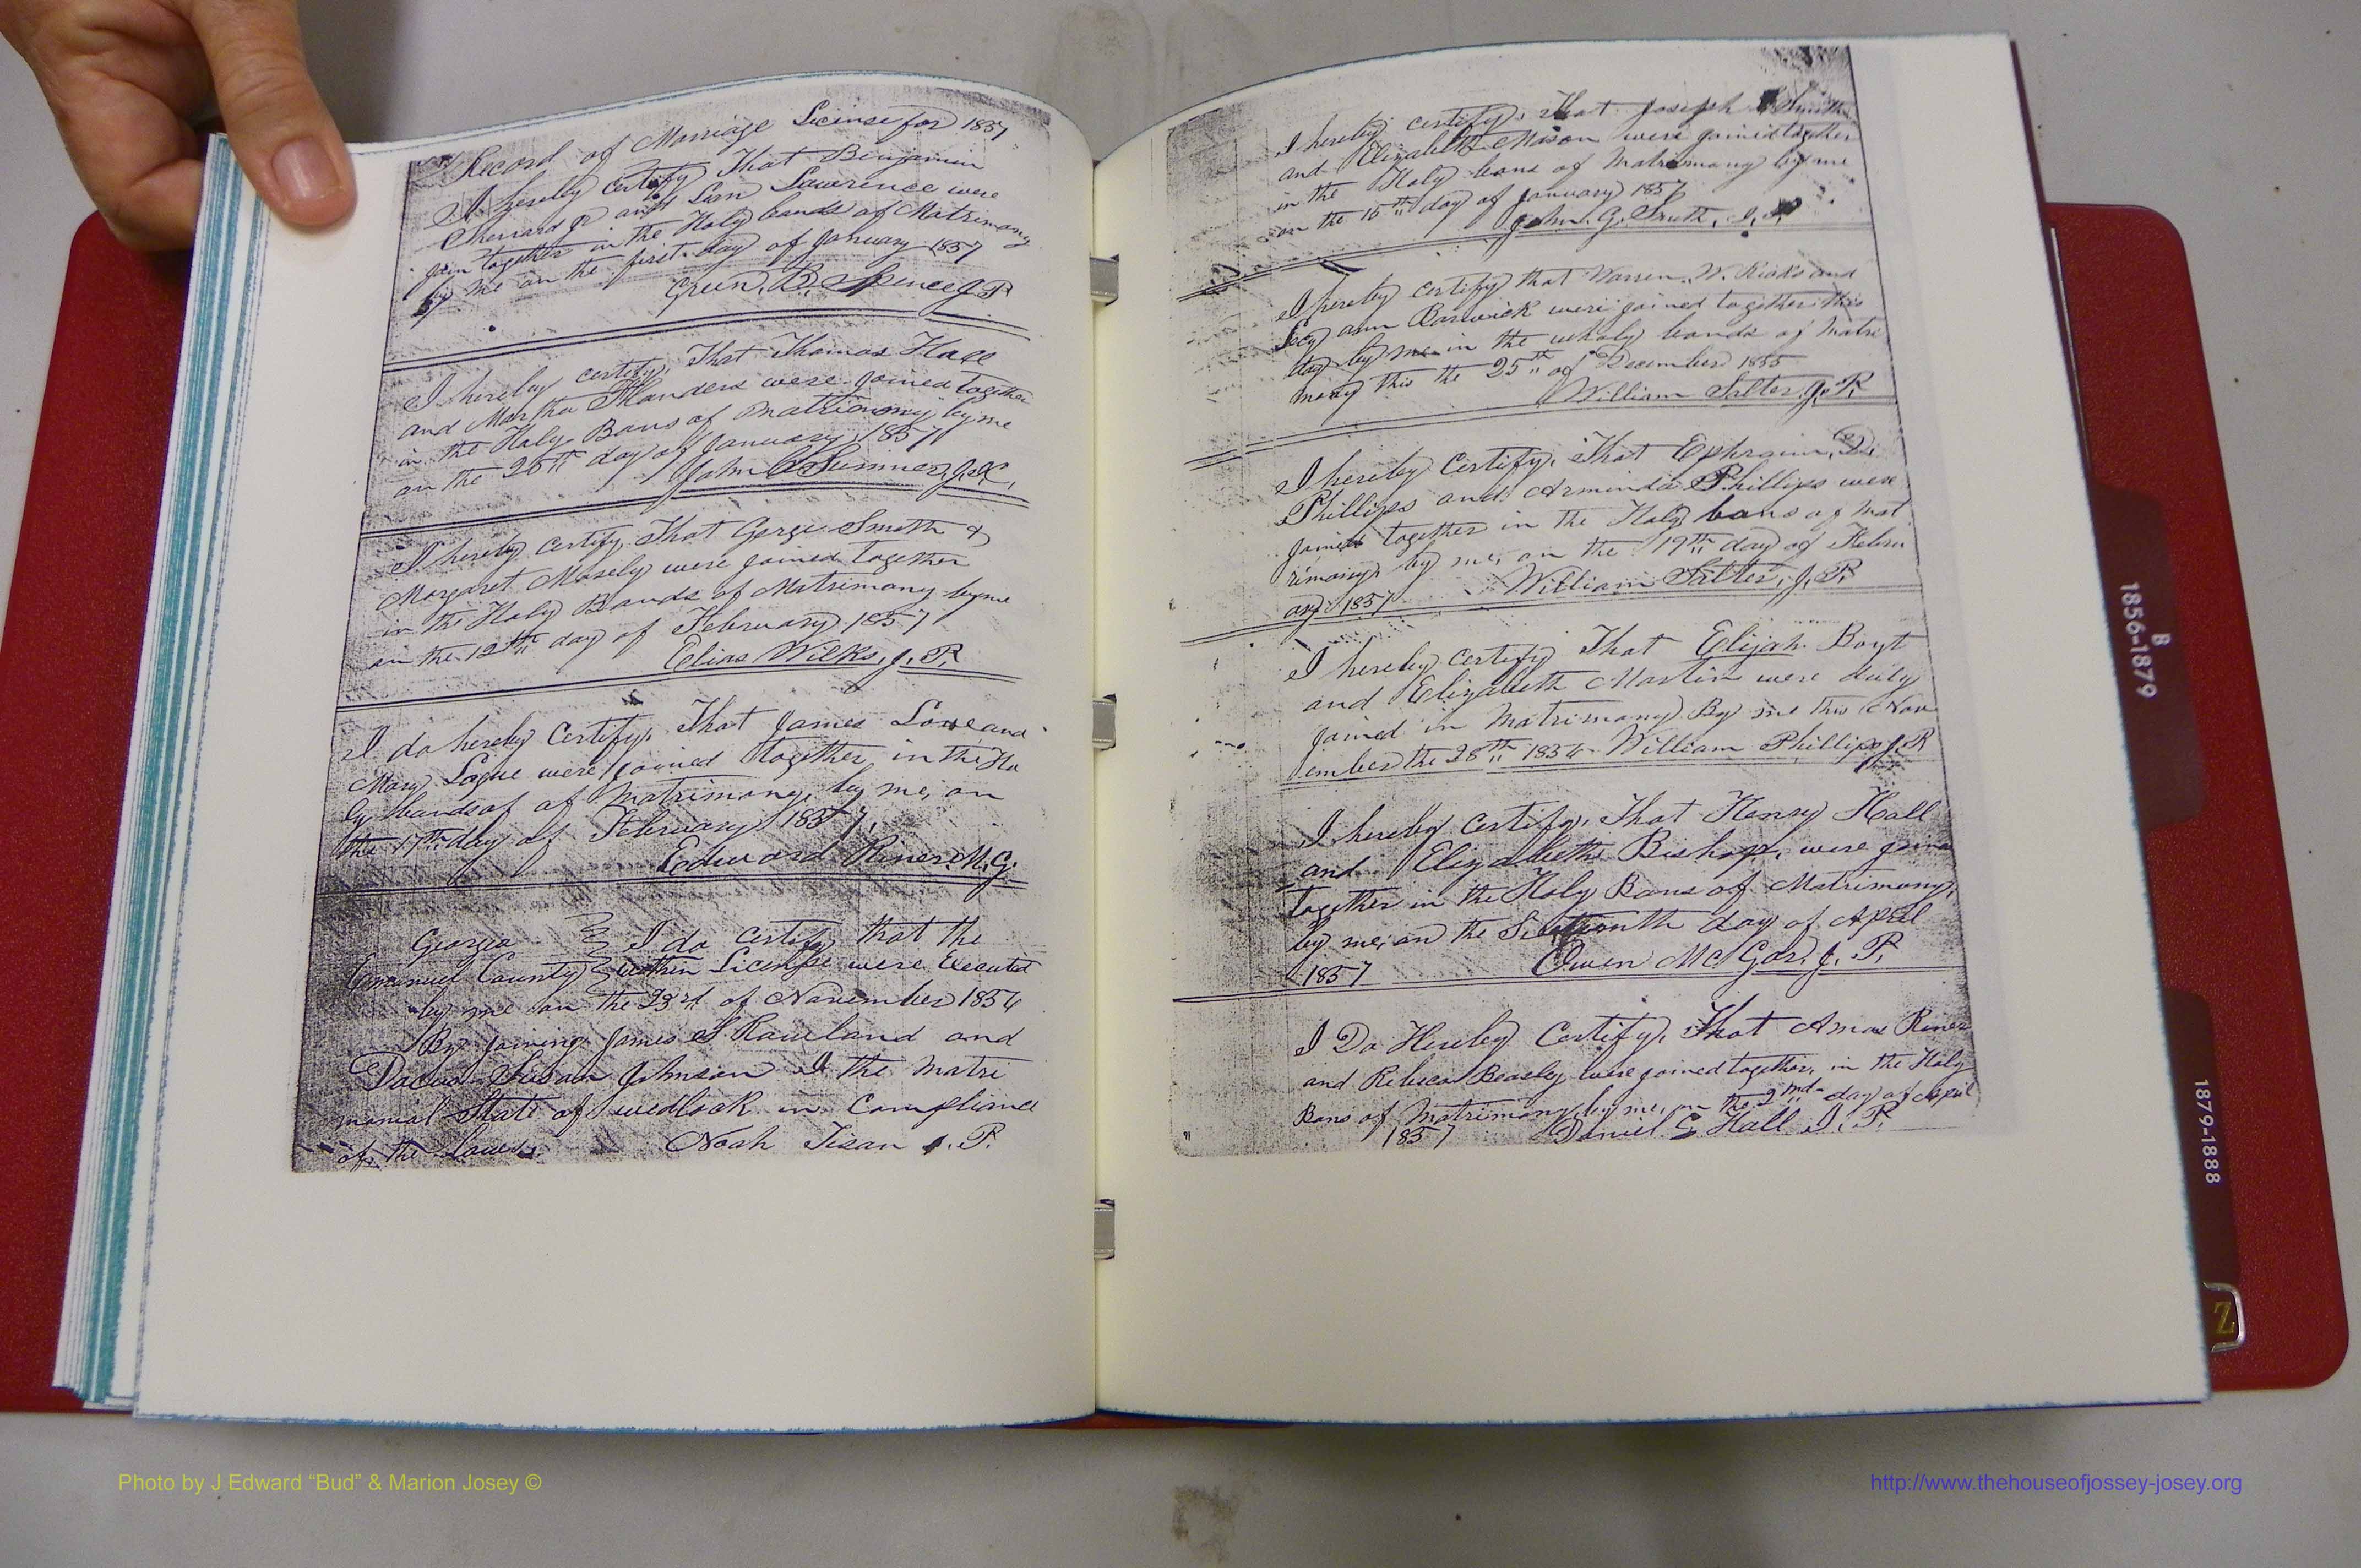 Record of Marriage License for 1857
I hereby certify That Benjamin
Sherrard Jr and Lan Lawrence were
join together in the Holy bands of Matrimony
by me on the first day of January 1857
Green. B. Spence J. P.
I hereby certify, That Thomas Hall
and Martha Flanders were joined together
in the Holy Bans of matrimony, by me
on the 26th day of January 1857
John C Sumner, J. P.
I hereby certify, That Gorge Smith &
Margaret Mosely were joined together
in the Holy Bands of Matrimony by me
on the 12th day of February 1857
Elias Wilks, J. P.
I do hereby Certify, That James Love and
Mary Logue were joined together in the Ho
ly bands of of Matrimony, by me, on
the 17th day of February 1857,
Edward Riner. M. G.
Georgia I do certify that the
Emanuel County within License were Executed
by me on the 23rd of November 1856
By joining James S. Rowland and
Susan Johnson I the matri
monial State of wedlock in Compliance
of the Laws. Noah Tison J. P.
I hereby certify, That Joseph Smith
and Elizabeth Mison were joined together
in the Holy bans of Matrimony by me
on the 15th day of January 1857
John. G. Smith, J. P.
I hereby certify that Warren. W. Ricks and
Lucy ann Barwick were joined together this
day by me in the wholy bands of Matri
mony this the 25th of December 1855
William Salter J. P.
I hereby Certify, That Ephraim, D.
Phillips and Arminda Phillips were
joined together in the Holy bans of Mat
rimony, by me, on the 19th day of Febru
ary 1857 William Salter, J. P.
I hereby certify That Elijah Boyt
and Elizabeth Martin were duly
joined in Matrimony By me this Nov
ember the 28th 1856 William Phillips J. P.
I hereby Certify, That Henry Hall
and Elizabeth Bishop, were joined
together in the Holy Bans of Matrimony,
by me, on the Sixteenth day of April
1857 Owen Mc Gar, J. P.
I Do Hereby Certify, That Amos Riner
and Rebeca Beasley were joined together, in the Holy
Bans of Matrimony, by me, on the 2nd day of April
1857 Daniel E Hall J. P.
B
1856-1879
1879-1888
Z
Photo by J Edward “Bud” & Marion Josey ©
http://www.thehouseofjossey-josey.org